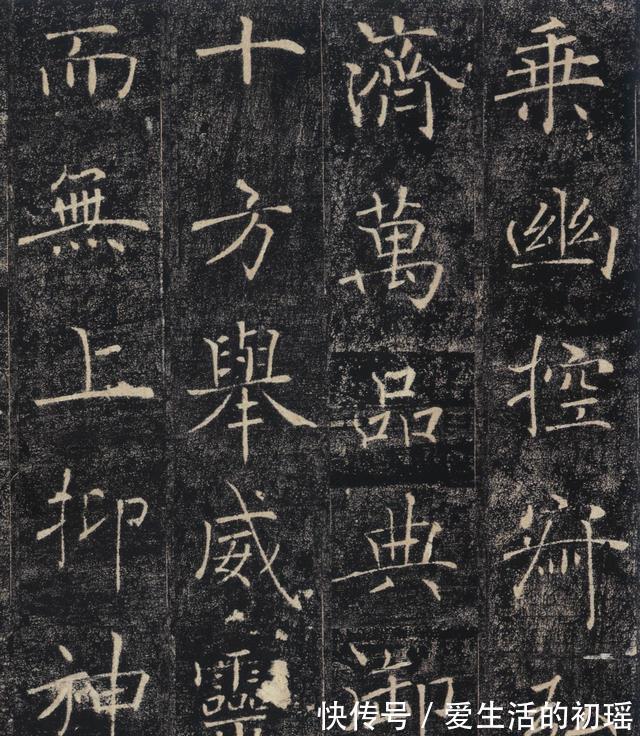 乘幽控寂
濟萬品典御
十方舉威靈
而無上抑神
快传号/爱生活的初瑶